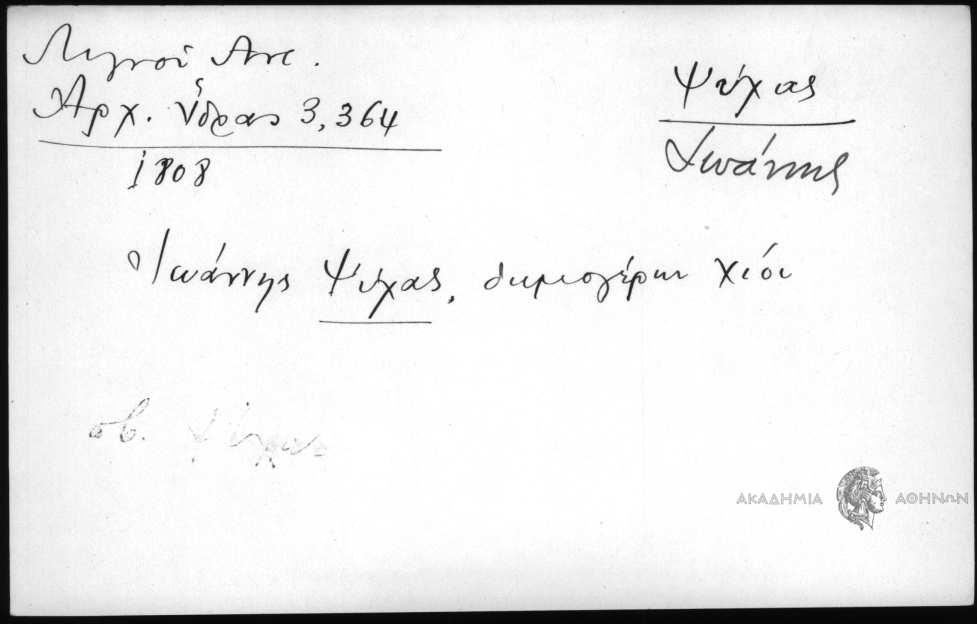 Λιγνοί Αντ.
Αρχ. Ύδρας 3,364
1808
Ψύχας
Ιωάννης
Ἰωάννης Ψύχας, δημογέρων Χίου
ΑΚΑΔΗΜΙΑ ΑΘΗΝΩΝ